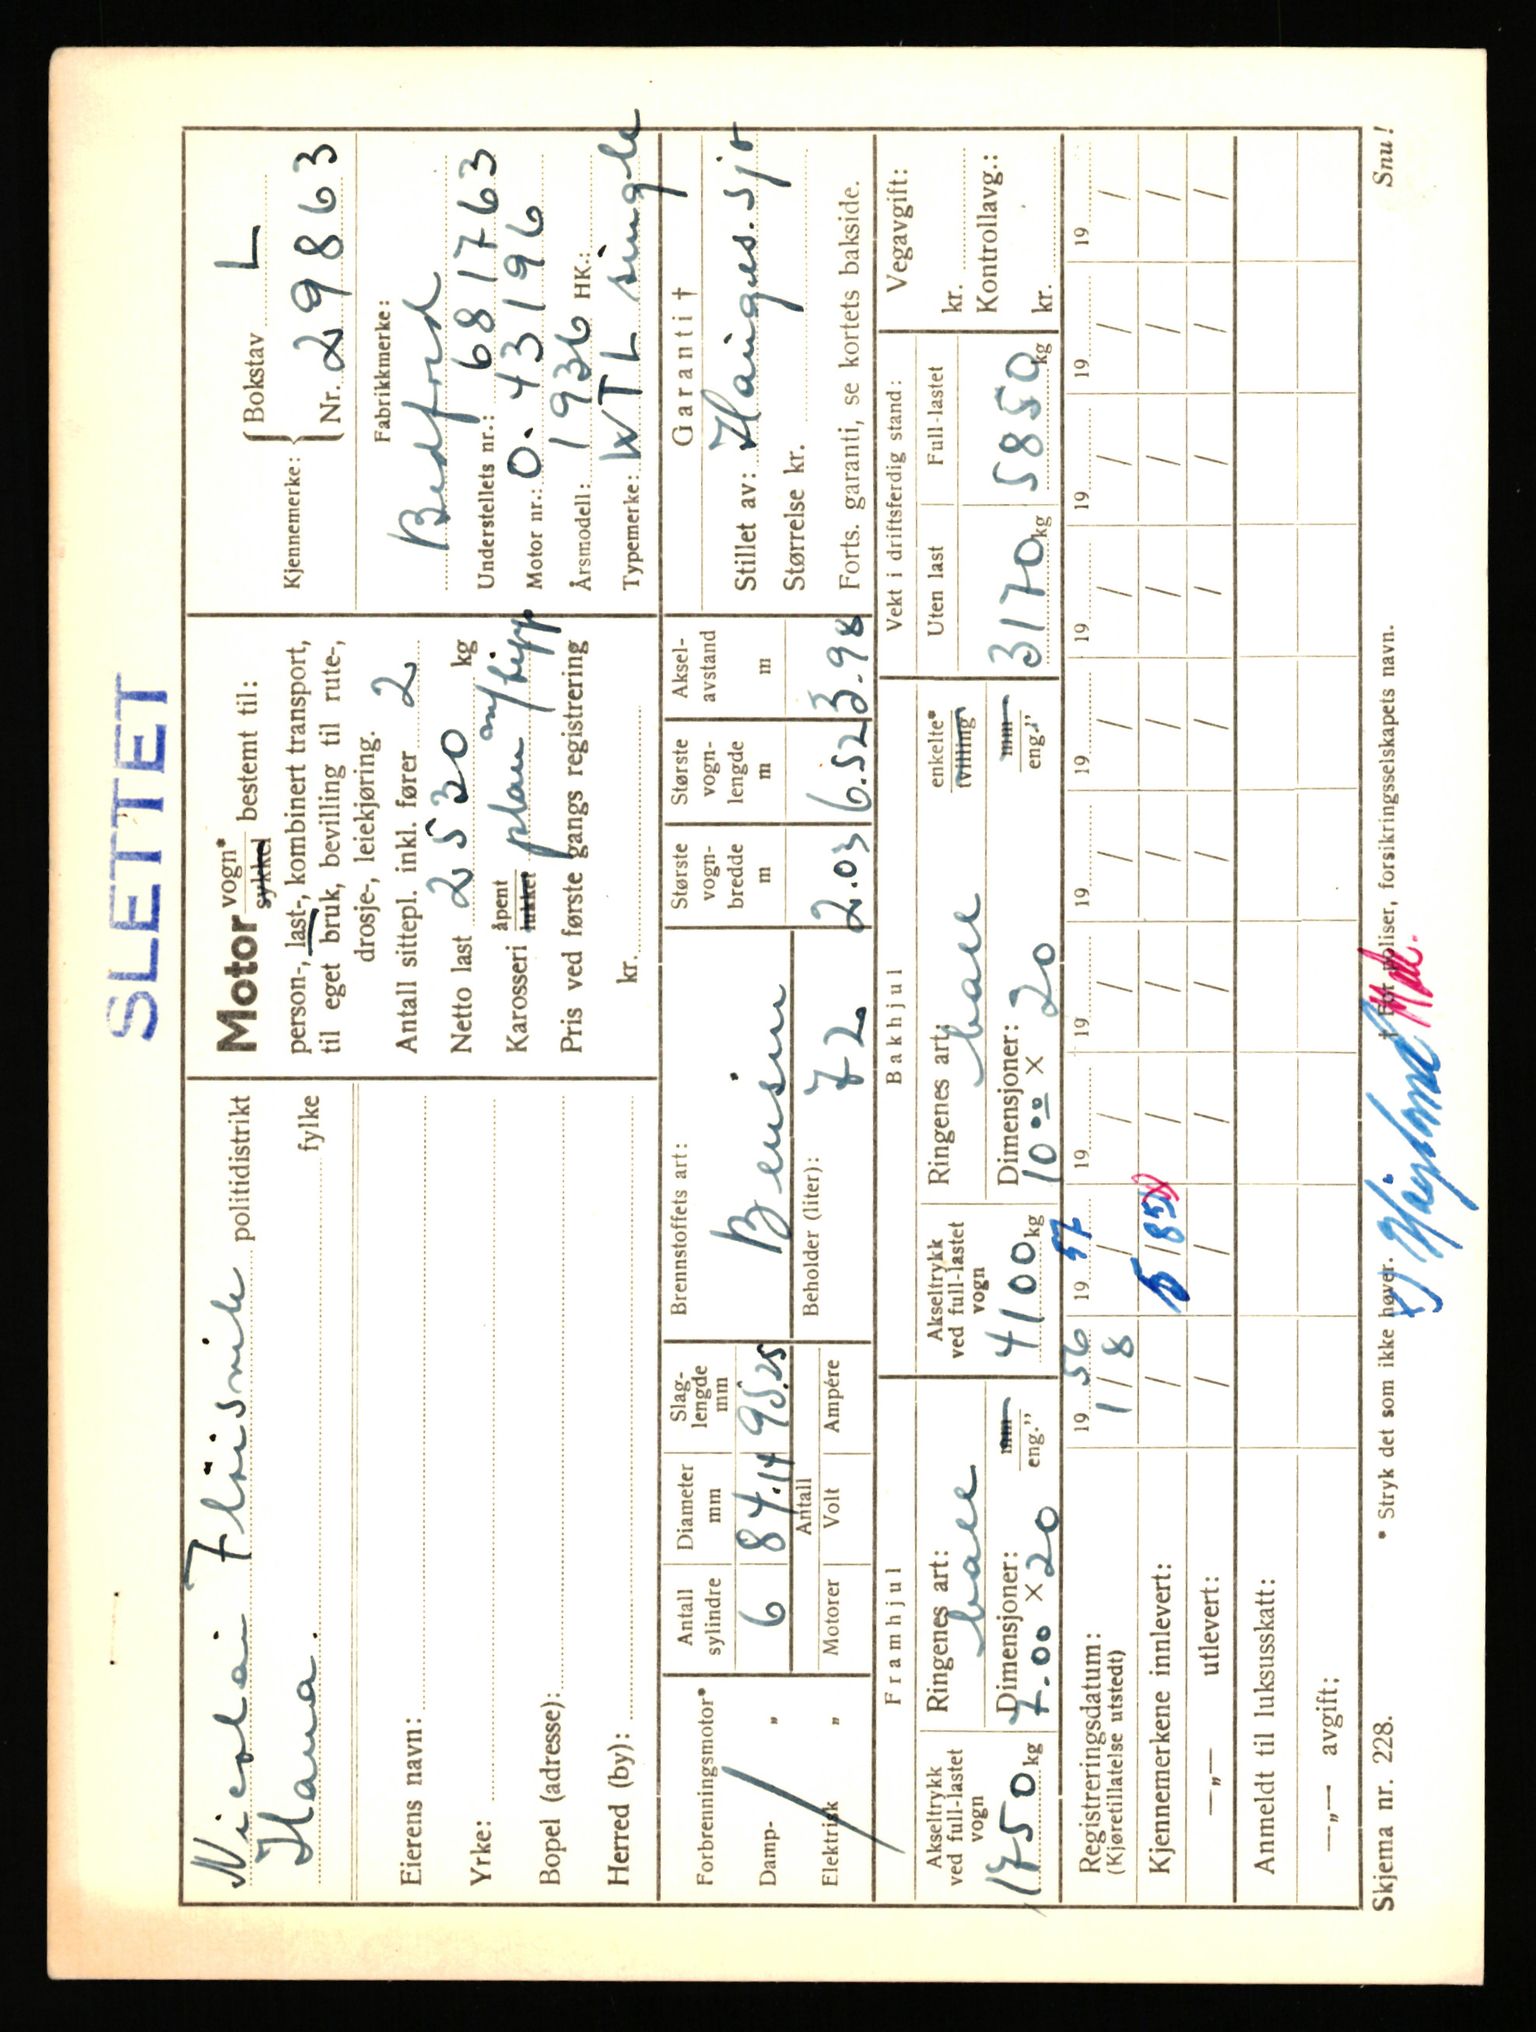 SLETTET
Nicolai politidistrikt
Hana. fylke
Eierens navn:
Yrke:
Bopel (adresse):
Herred (by):
Motor vogn* sykkel bestemt til:
person-, last-, kombinert transport,
til eget bruk, bevilling til rute-,
drosje-, leiekjøring.
Antall sittepl. inkl. fører 2
Netto last 2530 kg
Karosseri åpent lukket plan m/hipp
Pris ved første gangs registrering
kr.
Kjennemerke: { Bokstav L
Nr. 29863
Fabrikkmerke:
Bedford
Understellets nr.: 681763
Motor nr.: 0.43196
Årsmodell: 1936 HK.:
Typemerke: WTL single
Forbrenningsmotor*
Damp- „
Elektrisk „
Antall sylindre 6
Diameter mm 84.14
Slaglengde mm 95.25
Motorer Antall Volt Ampére
Brennstoffets art:
Bensin
Beholder (liter): 72
Største vogn-bredde m 2.03
Største vogn-lengde m 6.52
Aksel-avstand m 3.98
Garanti †
Stillet av: Hauges. Sjø
Størrelse kr.
Forts. garanti, se kortets bakside.
Framhjul
Akseltrykk ved full-lastet vogn 1750 kg
Ringenes art:
Dimensjoner: mm eng.”
7.00 × 20
Bakhjul
Akseltrykk ved full-lastet vogn 4100 kg
Ringenes art: enkelte* tvilling
Dimensjoner: mm eng.”
10.00 × 20
Vekt i driftsferdig stand:
Uten last 3170 kg
Full-lastet 5850 kg
Vegavgift:
kr.
Kontrollavg.:
kr.
Registreringsdatum: 19 56 19 57 19 19 19 19 19 19 19 19
(Kjøretillatelse utstedt) 1/8 / / / / / / / / /
Kjennemerkene innlevert: / / / / / / / / /
—„— utlevert: / / / / / / / / / /
Anmeldt til luksusskatt:
—„— avgift:
Skjema nr. 228.
* Stryk det som ikke høver.
† For poliser, forsikringsselskapets navn.
Snu!